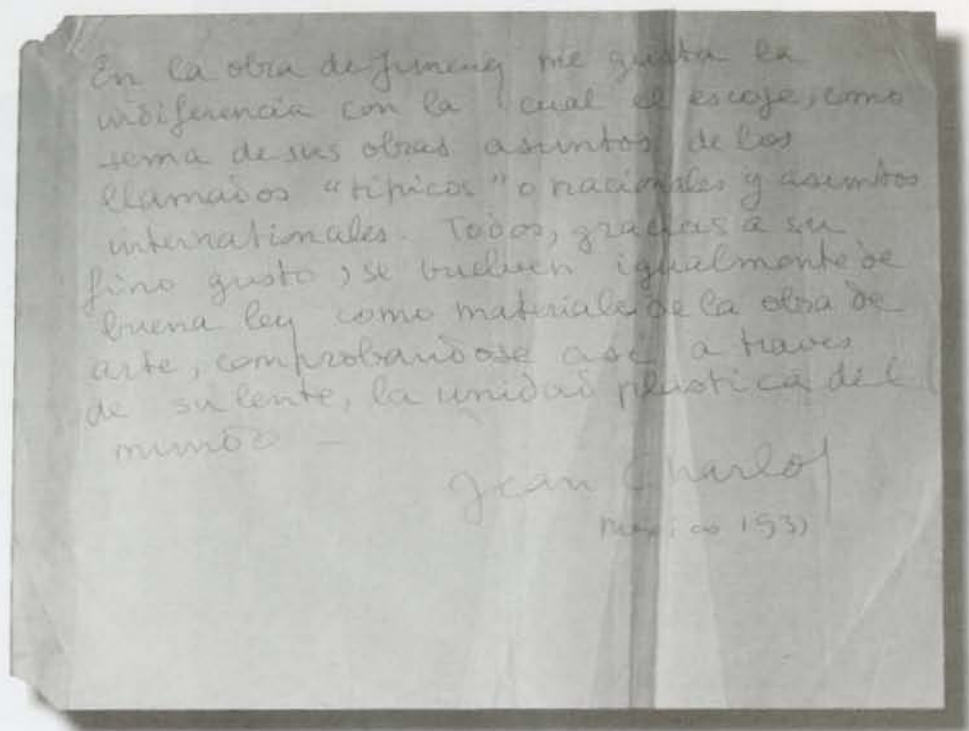 En la obra de Jimenez me gusta la
indiferencia con la cual el escoje, como
tema de sus obras asuntos de los
llamados "tipicos" o nacionales y asuntos
internationales. Todos, gracias a su
fino gusto, se vuelven igualmente de
buena ley como materiale de la obra de
arte, comprobandose asi a traves
de su lente, la unidad plastica del
mundo —
Jean Charlot
Mexico 1931